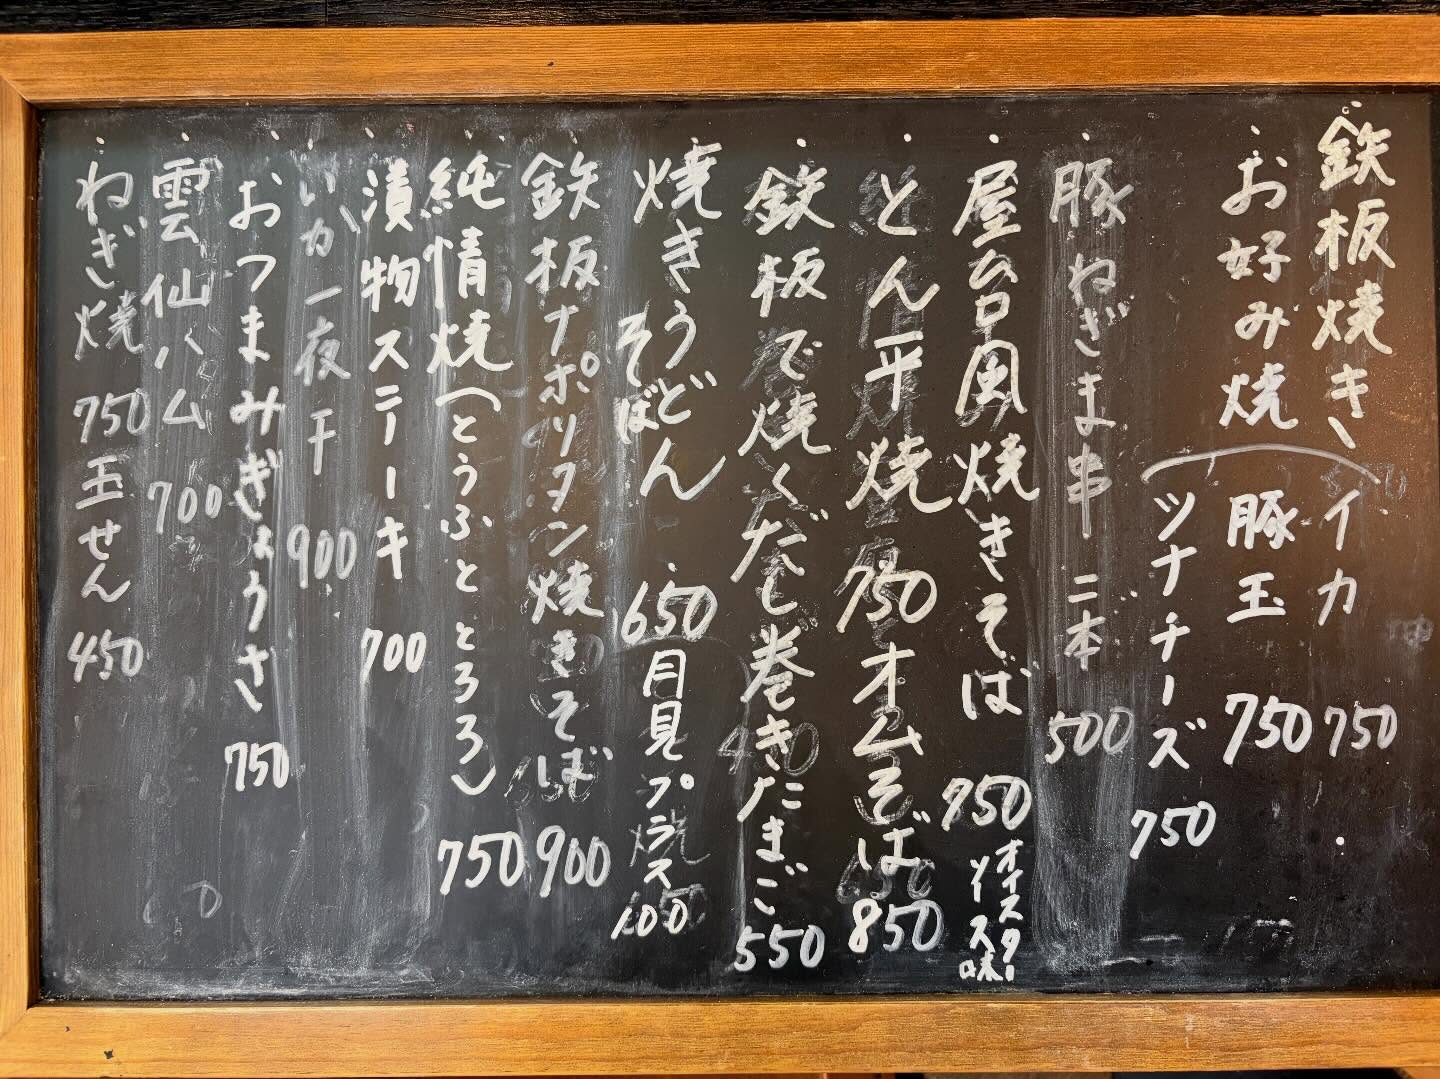 鉄板焼き、イカ 750
お好み焼 豚玉 750
ツナチーズ 750
豚ねぎま串 二本 500
屋台風焼きそば 750 オイスターソース味
とん平焼 750 オムそば 850
鉄板で焼くだし巻きたまご 550
焼きうどん 650 月見プラス 100
そば
鉄板ナポリタン焼きそば 900
純情焼(とうふととろろ) 750
漬物ステーキ 700
いか一夜干 900
おつまみぎょうさ 750
雲仙ハム 700
ねぎ焼 750 玉せん 450